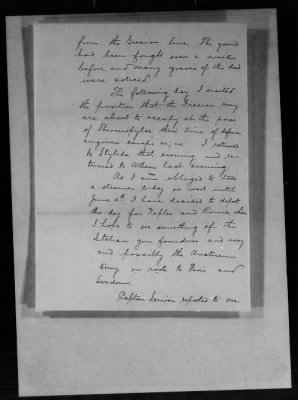 from the Grecian line. The ground
had been fought over a week
before and many graves of the dead
were noticed.
The following day, I visited
the position that the Grecian army
are about to occupy at the pass
of Thermopylae their line of defense
engineer camps, etc. I returned
to Stylida that evening and re-
turned to Athens last evening.
As I am obliged to take
a steamer to-day or wait until
June 6th, I have decided to depart
this day for Naples and Rome where
I hope to see something of the
Italian gun foundries and army
and possibly the Austrian
Army en route to Paris and
London.
Captain reported to me